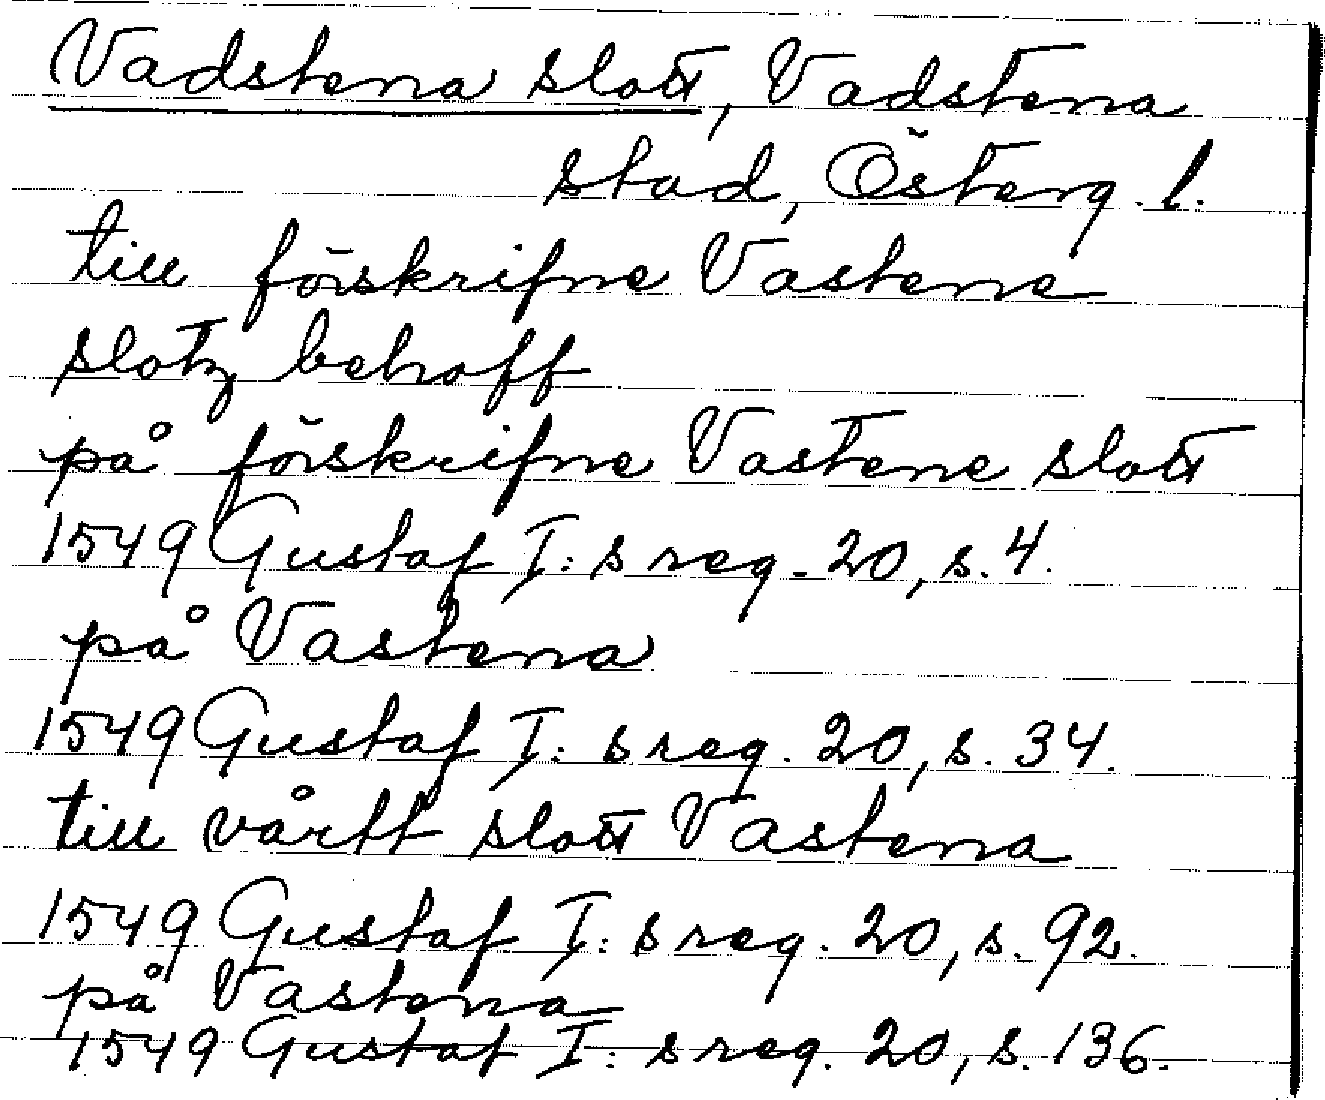 Vadstena slott, Vadstena
stad, Österg. l.
till förskrifne Vastene
slotz behoff
på förskrifne Vastene slott
1549 Gustaf I:s reg. 20, s. 4.
på Vastena
1549 Gustaf I:s reg. 20, s. 34.
till vårtt slott Vastena
1549 Gustaf I:s reg. 20, s. 92.
på Vastena
1549 Gustaf I:s reg. 20, s. 136.